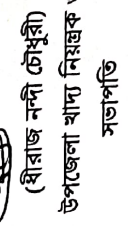 (ধীরাজ নন্দী চৌধুরী)
উপজেলা খাদ্য নিয়ন্ত্রক
সভাপতি